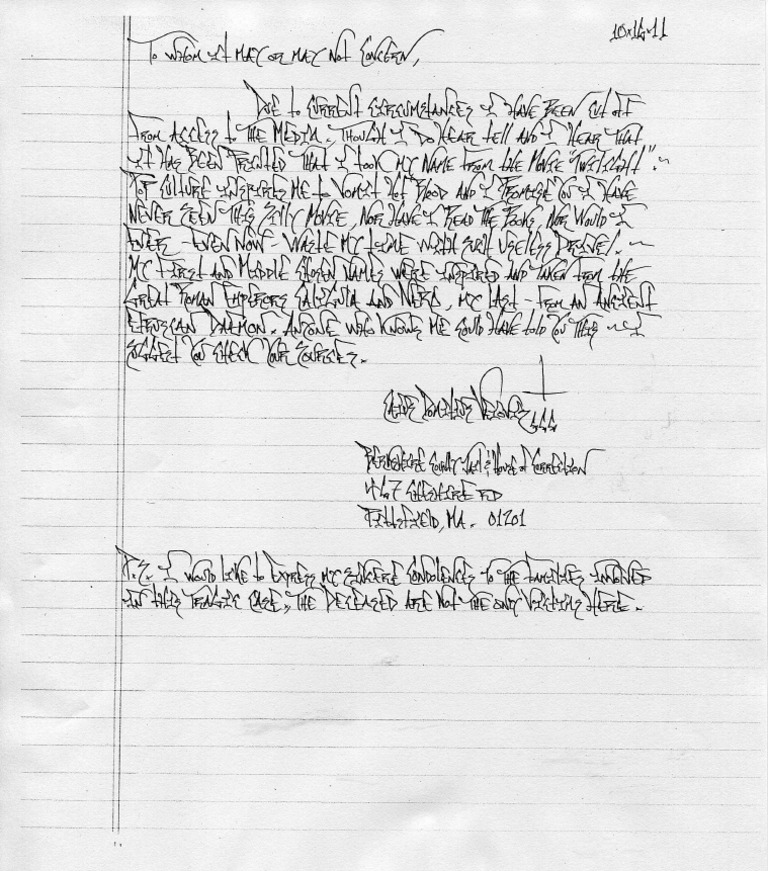 10·16·11
To whom it may or may not concern,
Due to current circumstances I have been cut off
from access to the media. Though I do hear tell and I hear that
it has been printed that I took my name from the movie "Twilight". ~
Pop culture inspires me to vomit hot blood and I promise you I have
never seen this silly movie, nor have I read the books, nor would I
ever - even now - waste my time with such useless drivel. ~
My first and middle chosen names were inspired and taken from the
great Roman Emperors Caligula and Nero, my last - from an ancient
Etruscan daemon. Anyone who knows me could have told you this ~ I
suggest you check your sources.
Caius Domitius Veiovis
Berkshire County Jail & House of Correction
467 Cheshire RD
Pittsfield, MA. 01201
P.S. I would like to express my sincere condolences to the families involved
in this tragic case, the deceased are not the only victims here.